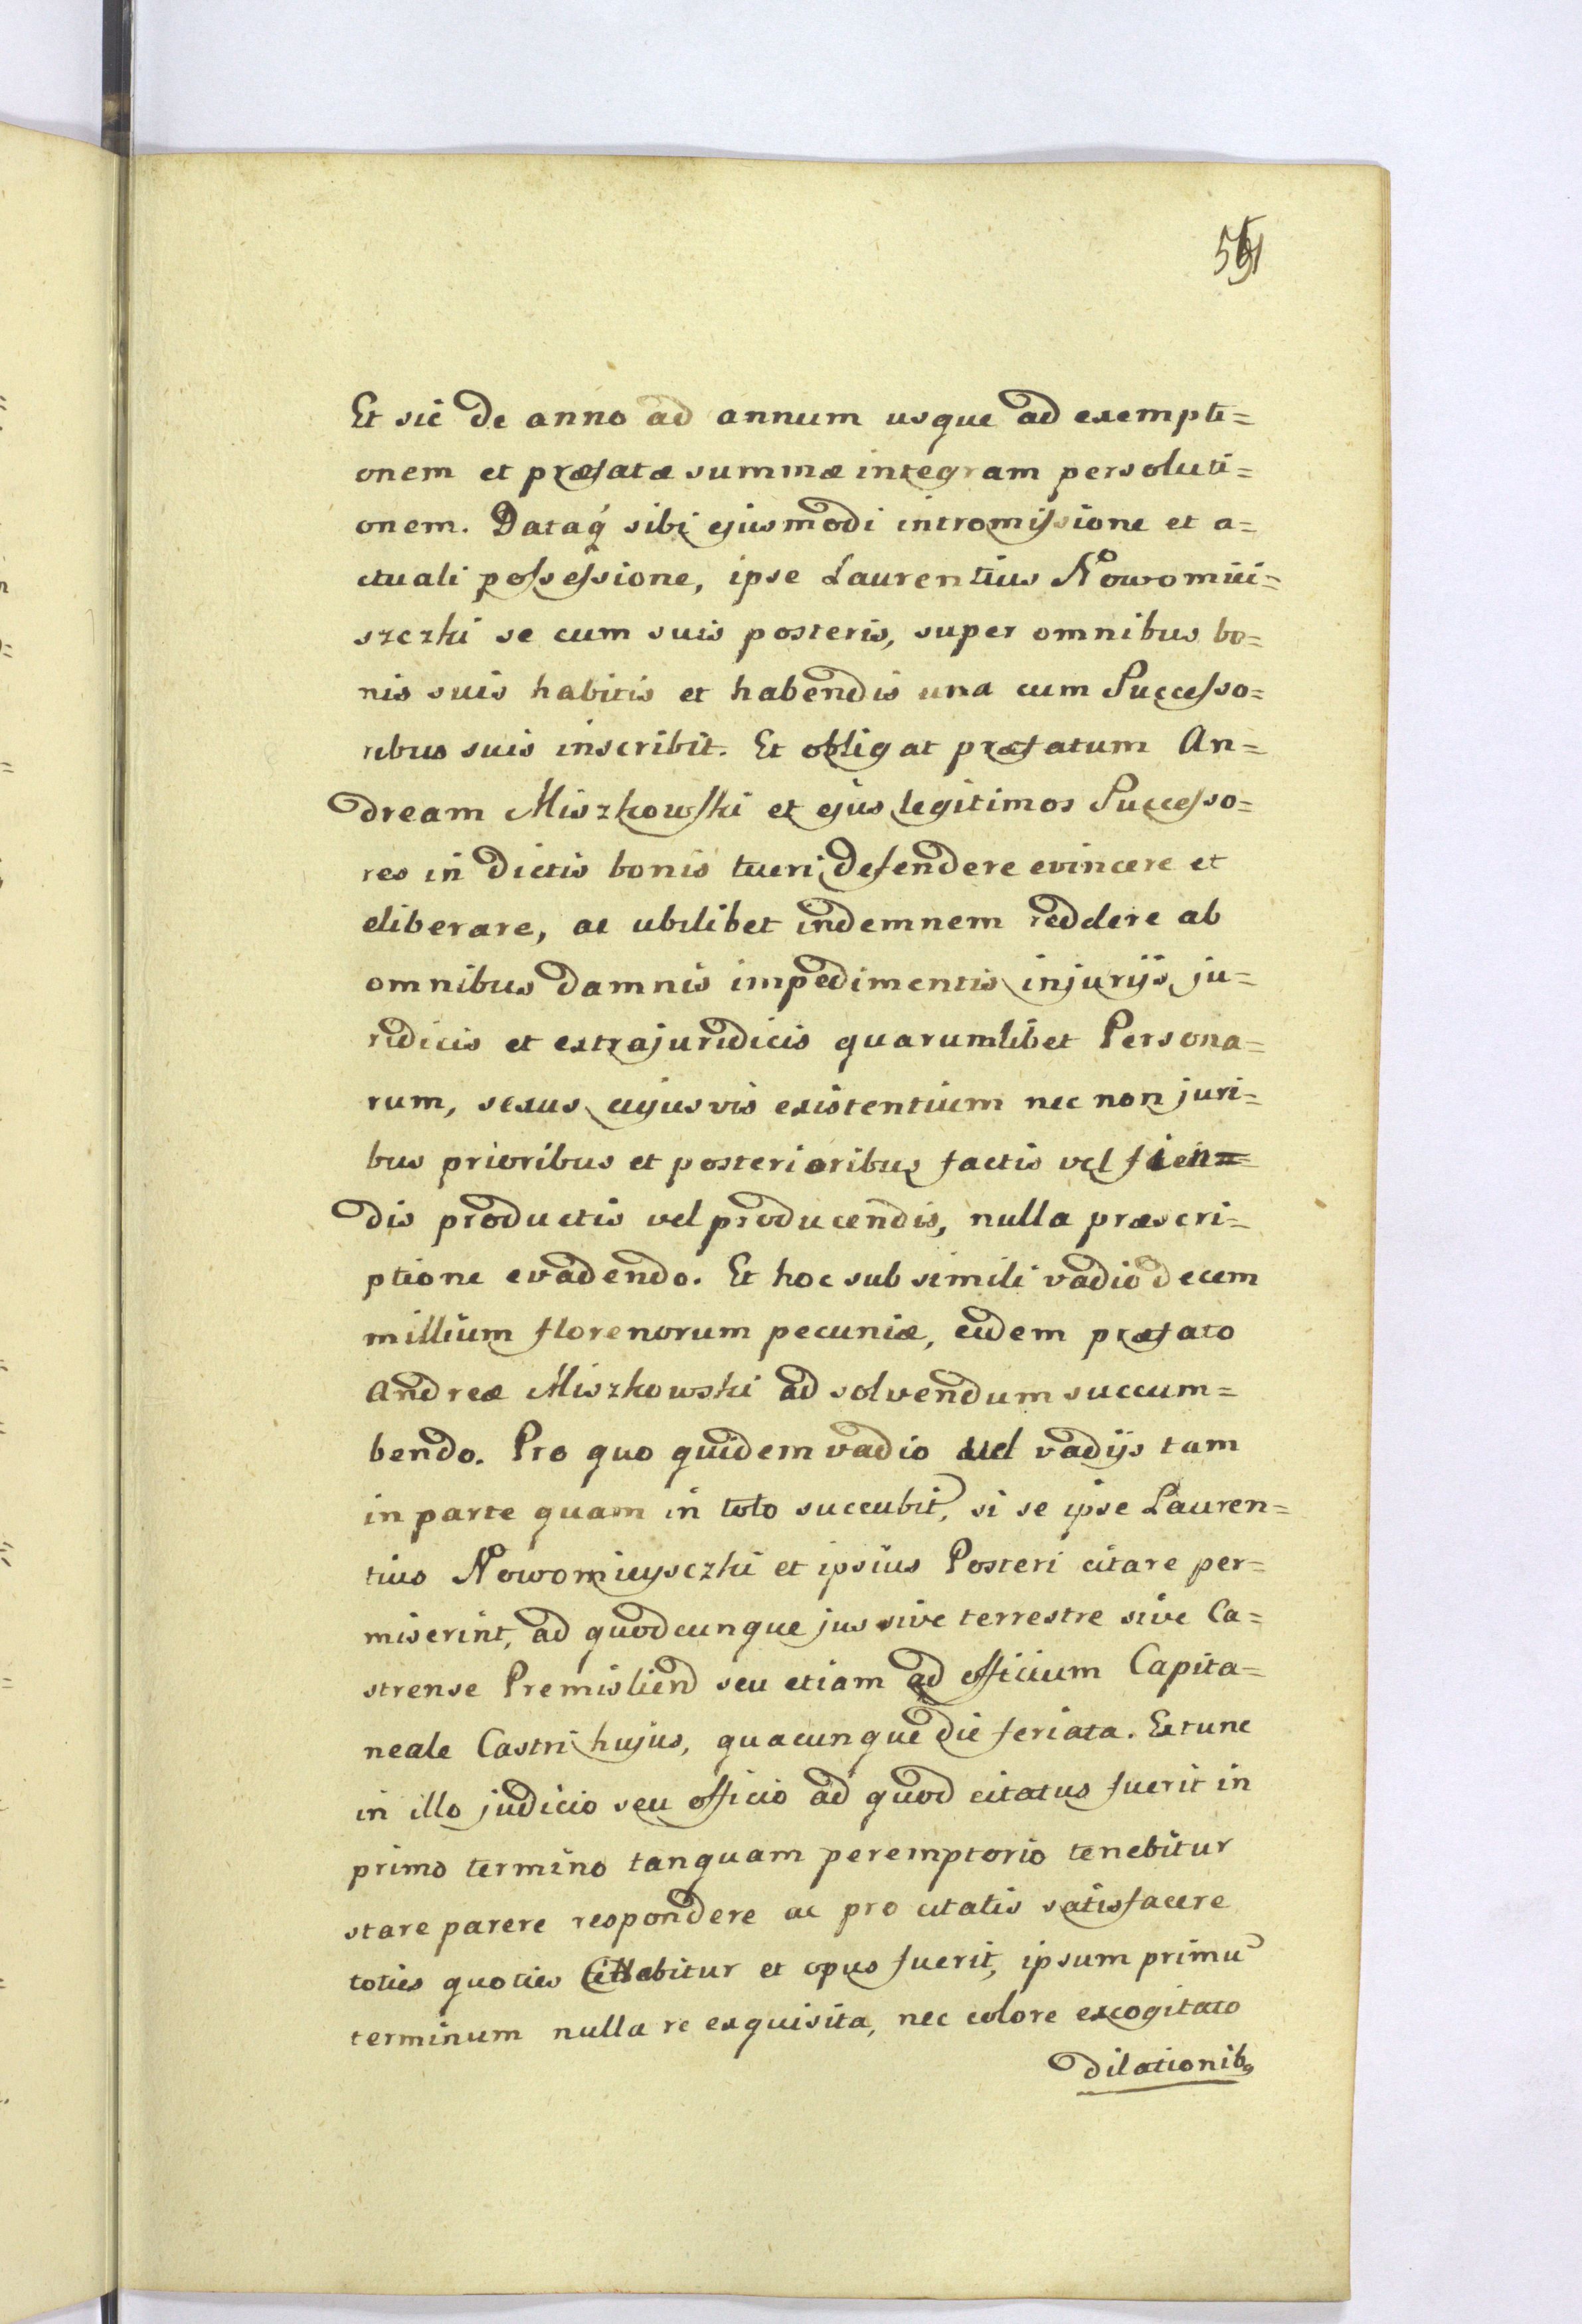 Et sic de anno ad annum usque ad exempti=
onem et præfatæ summæ integram persoluti=
onem. Dataq́ sibi ejusmodi intromissione et a=
ctuali possessione, ipse Laurentius Nowomiei=
szczki se cum suis posteris, super omnibus bo=
nis suis habitis et habendis una cum Successo=
ribus suis inscribit. Et obligat præfatum An=
dream Miszkowski et ejus legitimos Successo=
res in dictis bonis tueri, defendere evincere et
eliberare, ac ubilibet indemnem reddere ab
omnibus damnis impedimentis injurijs, ju=
ridicis et extrajuridicis quarumlibet Persona=
rum, sexus cujusvis existentium nec non juri=
bus prioribus et posterioribus factis vel fien=
dis productis vel producendis, nulla præscri=
ptione evadendo. Et hoc sub simili vadio decem
millium florenorum pecuniæ, eidem præfato
Andreæ Miszkowski ad solvendum succum=
bendo. Pro quo quidem vadio vel vadijs tam
in parte quam in toto succubit, si se ipse Lauren=
tius Nowomieysczki et ipsius Posteri citare per=
miserint, ad quodcunque jus sive terrestre sive Ca=
strense Premislien̄ seu etiam ad officium Capita=
neale Castri hujus, quacunque die feriata. Extunc
in illo judicio seu officio ad quod citatus fuerit in
primo termino tanquam peremptorio tenebitur
stare parere respondere ac pro citatis satisfacere
toties quoties citabitur et opus fuerit, ipsum primū
terminum nulla re exquisita, nec colore excogitato
dilationib9